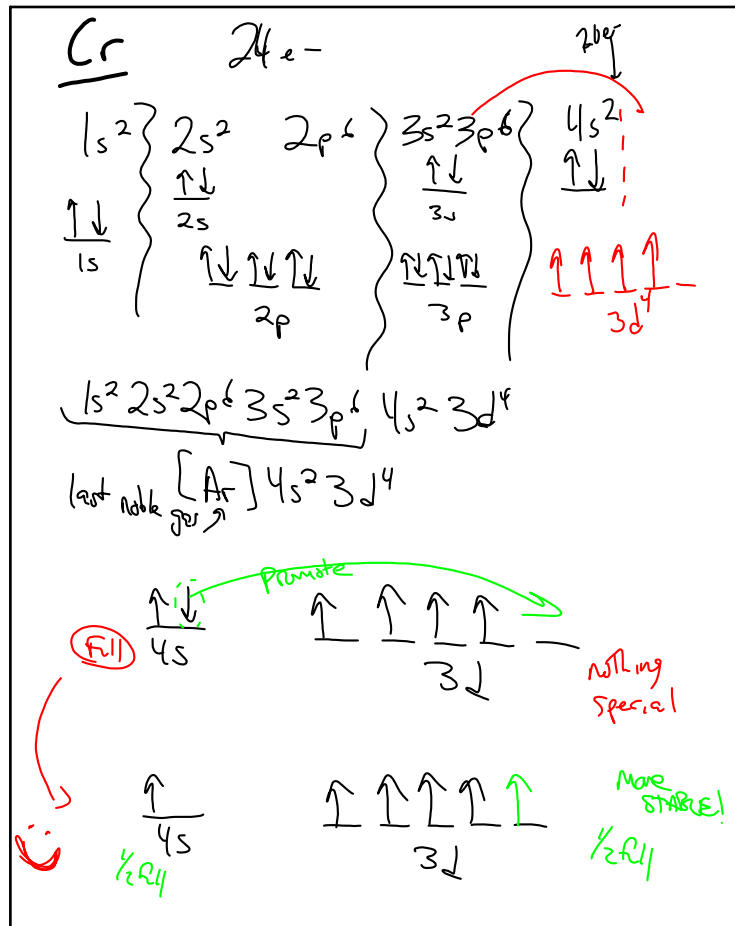 Cr 24 e-
20e-
1s² 2s² 2p⁶ 3s² 3p⁶ 4s²
↑↓ ↑↓ ↑↓ ↑↓
1s 2s 3s
↑↓ ↑↓ ↑↓ ↑↓ ↑↓ ↑↓ ↑ ↑ ↑ ↑ _
2p 3p 3d⁴
1s² 2s² 2p⁶ 3s² 3p⁶ 4s² 3d⁴
last noble gas [Ar] 4s² 3d⁴
promote
↑↓ ↑ ↑ ↑ ↑ _
Full 4s 3d nothing special
↑ ↑ ↑ ↑ ↑ ↑ More STABLE!
4s 3d
½ full ½ full